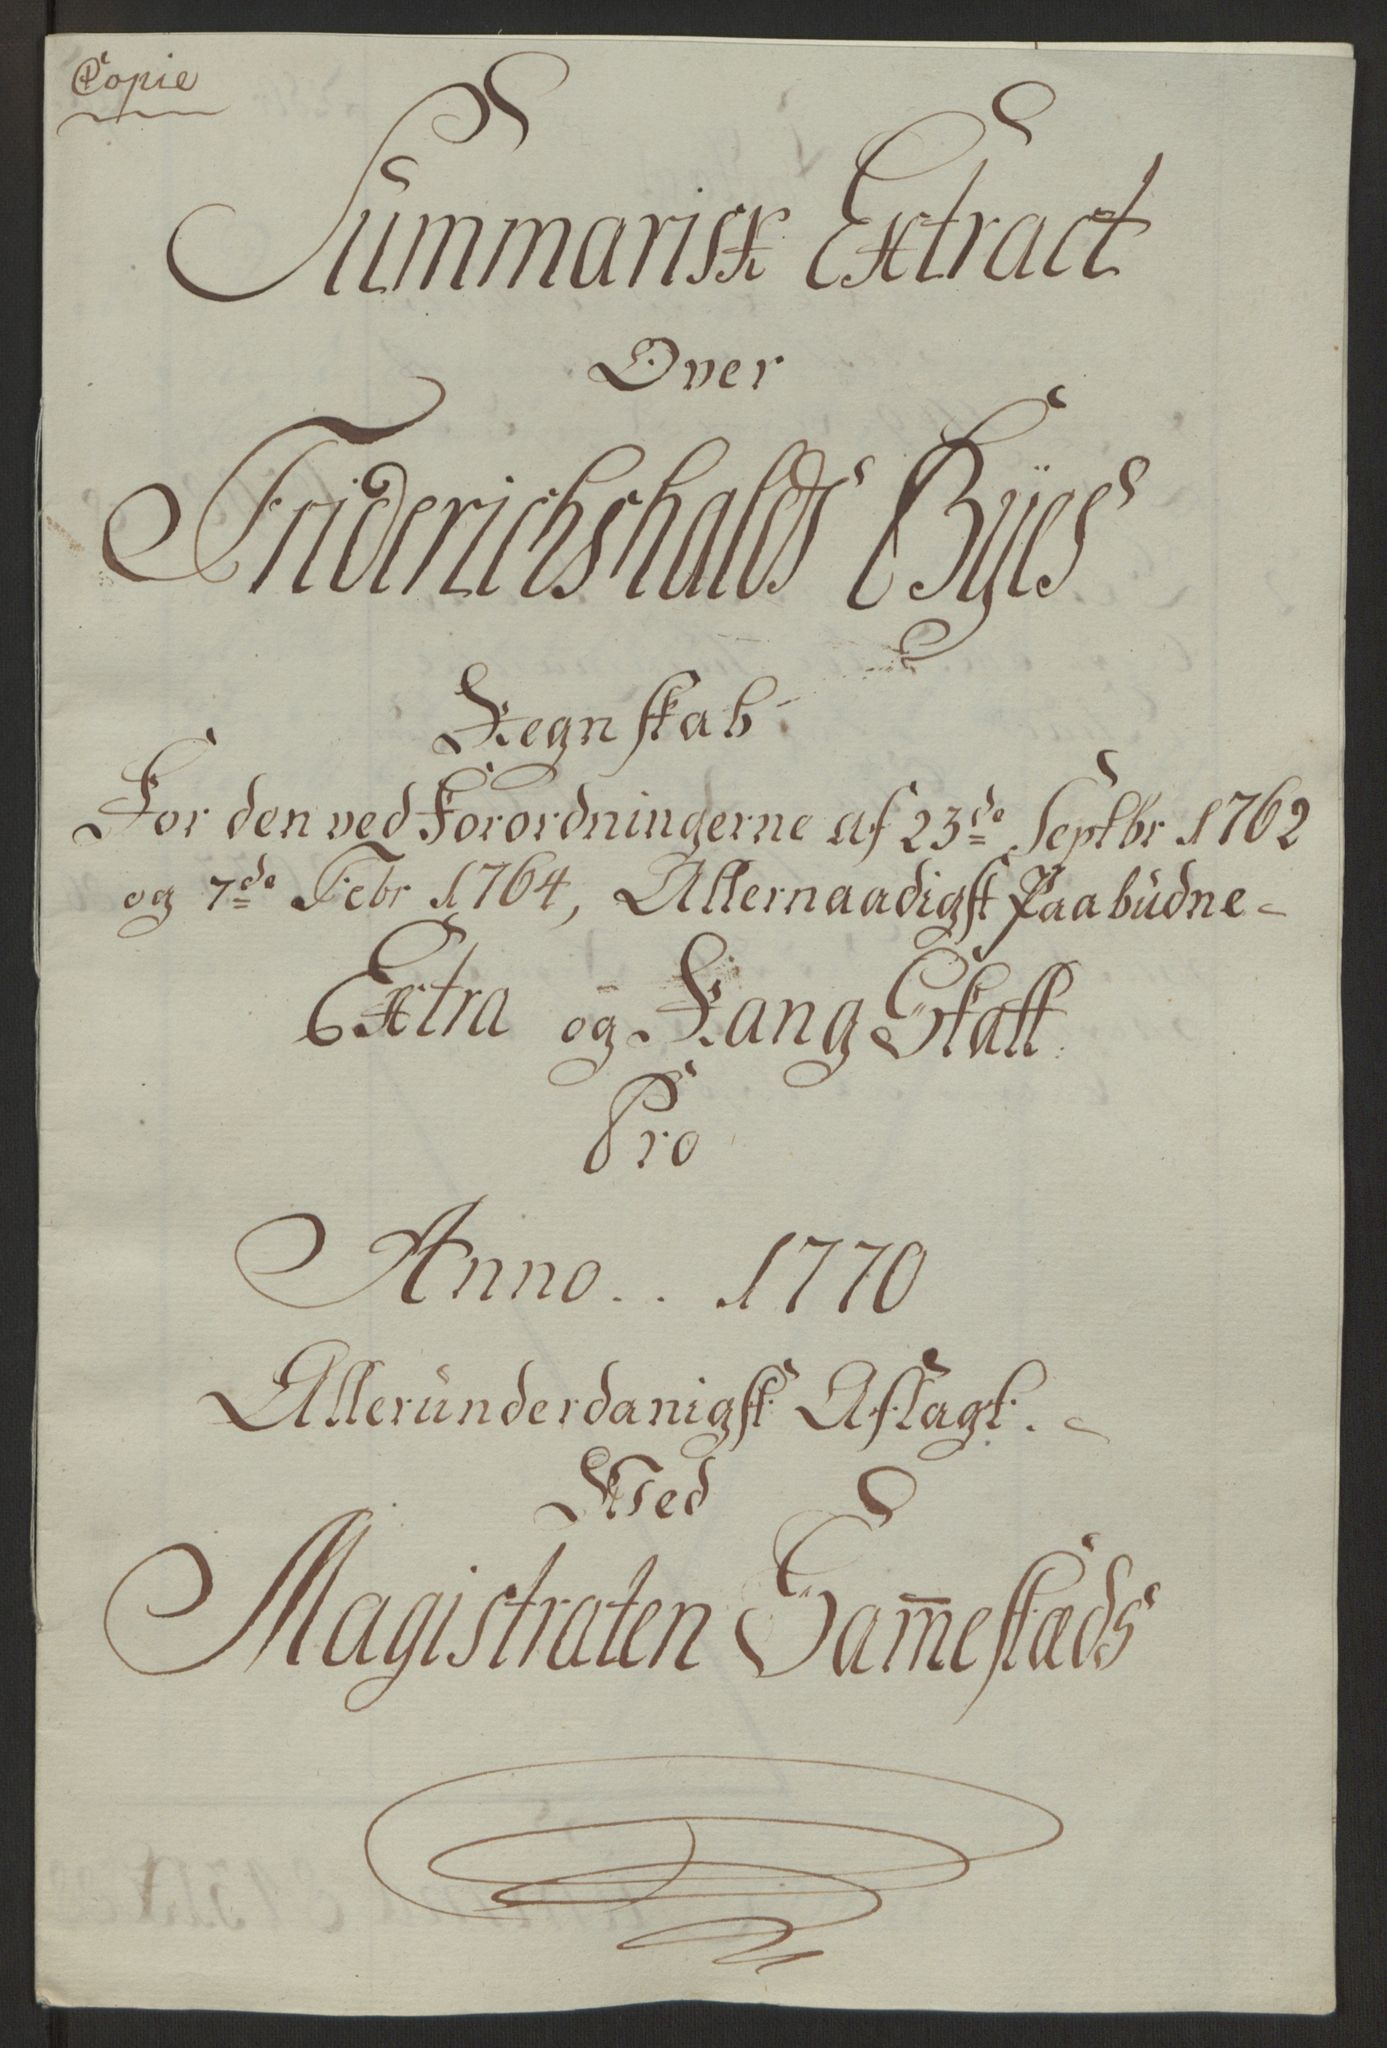 Copie
Summarisk Extract
Over
Friderichshalds Byes
Regnskab
For den ved Forordningerne af 23de Septbr 1762
og 7de Febr 1764, Allernaadigst Paabudne
Extra og Rang Skatt
Pro
Anno .. 1770
Allerunderdanigst Aflagt.
Ved
Magistraten Sam̅estæds